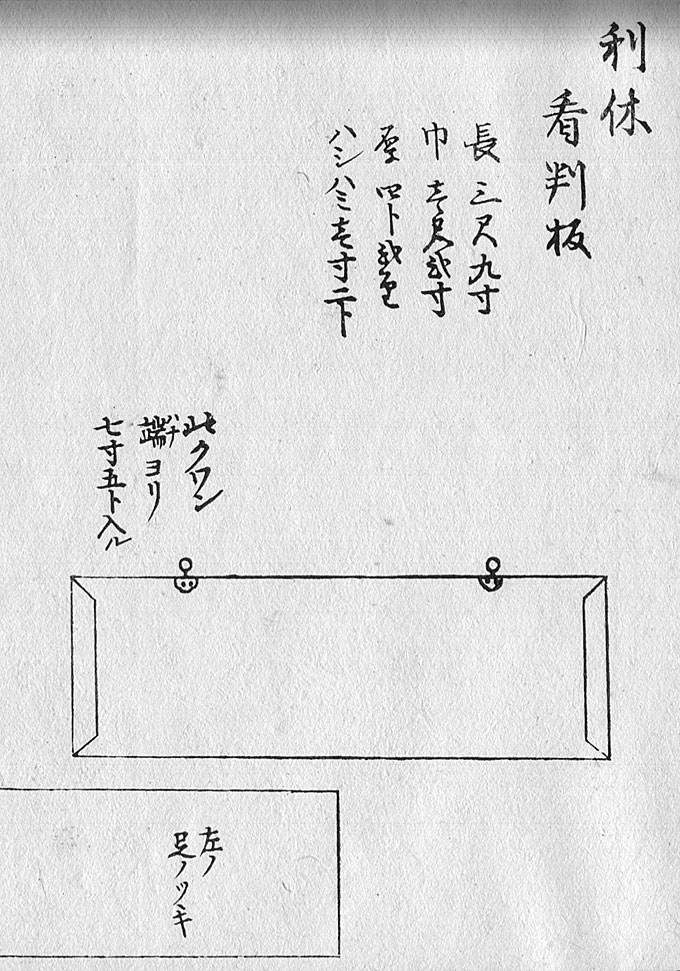 利休
看判板
長 三尺九寸
巾 壱尺弐寸
厚 四卜弐厘
ハシハミ壱寸二卜
此クワン
端ヨリ
ハナ
七寸五卜入ル
左ノ
足ノツキ